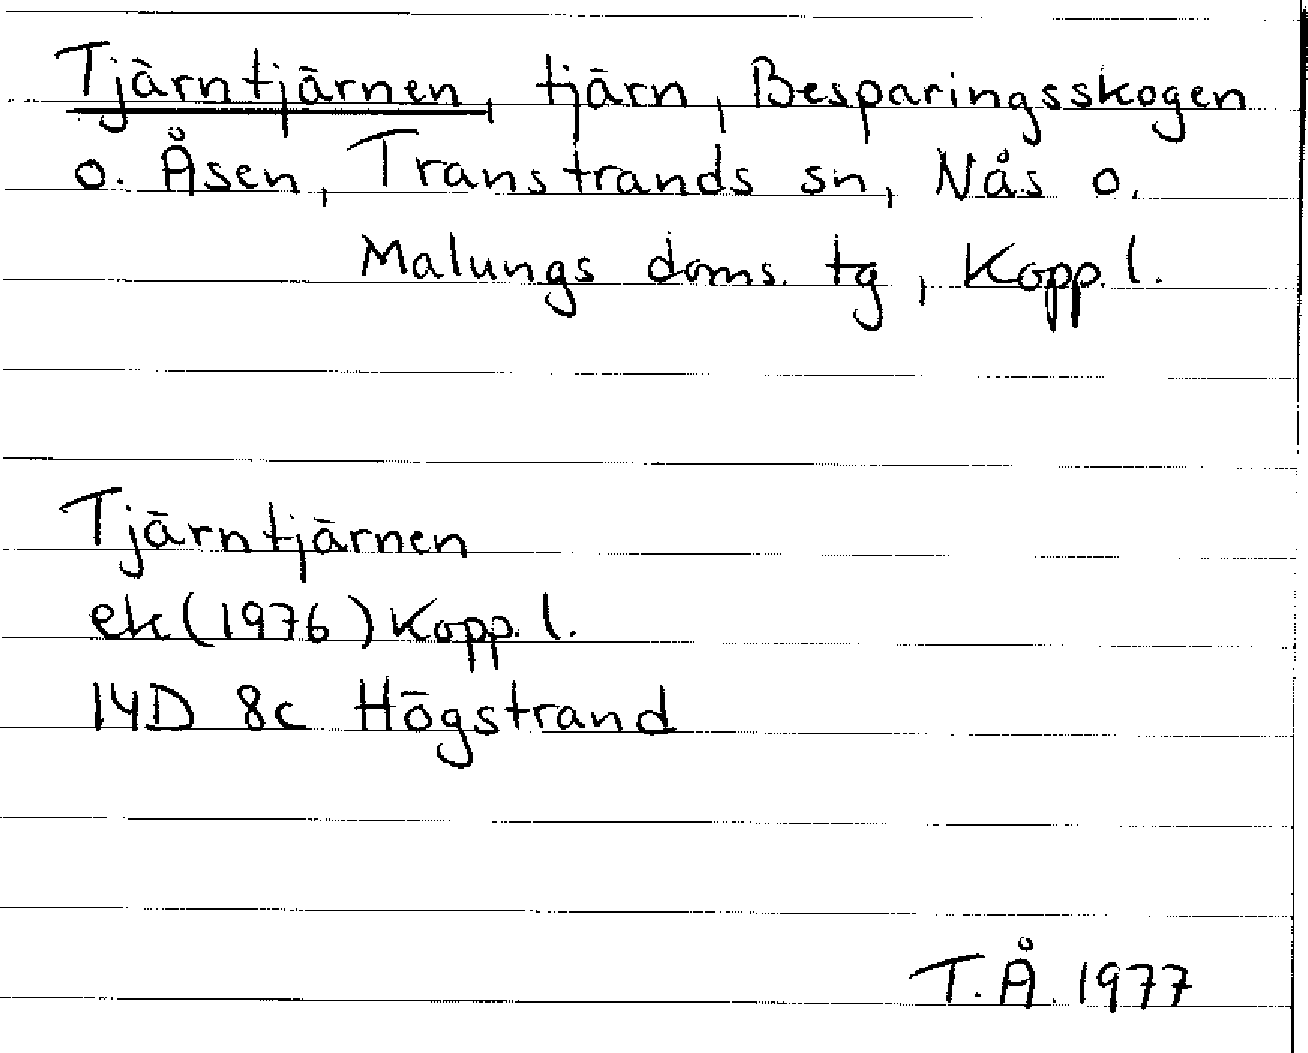 Tjärntjärnen, tjärn, Besparingsskogen
o. Åsen, Transtrands sn, Nås o.
Malungs doms. tg, Kopp. l.
Tjärntjärnen
ek (1976) Kopp. l.
14D 8c Högstrand
T.Å. 1977